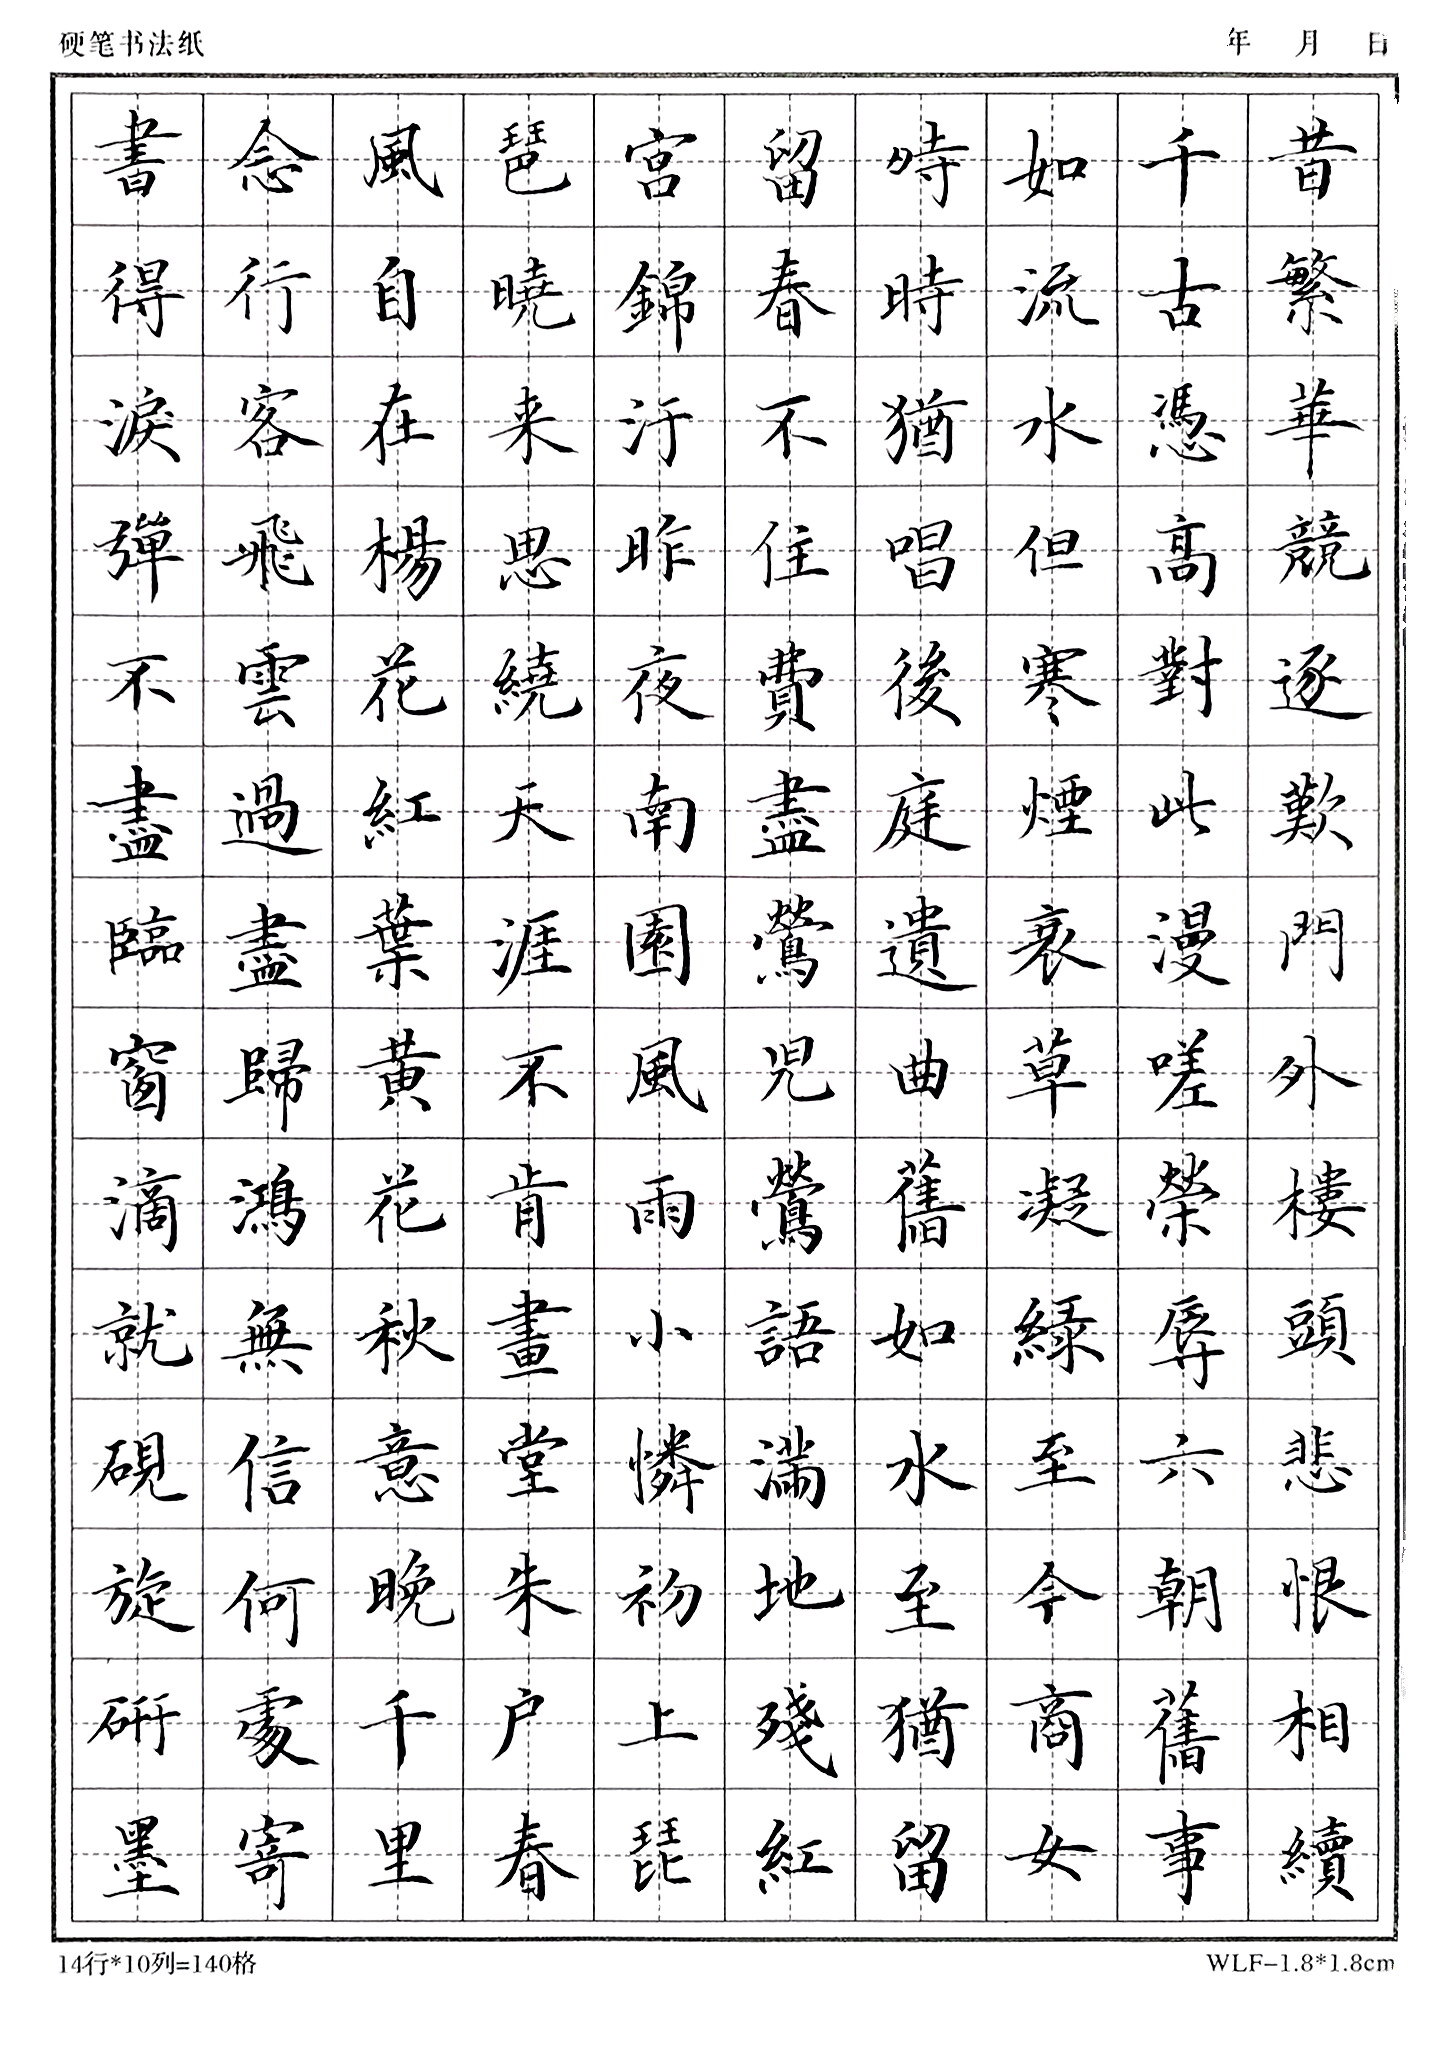 硬笔书法纸
年 月 日
昔繁華競逐歎門外樓頭悲恨相續
千古憑高對此漫嗟榮辱六朝舊事
如流水但寒煙衰草凝綠至今商女
時時猶唱後庭遺曲舊如水至猶留
留春不住費盡鶯児鶯語滿地殘紅
宮錦汙昨夜南園風雨小憐初上琵
琶曉来思繞天涯不肯畫堂朱户春
風自在楊花紅葉黃花秋意晚千里
念行客飛雲過盡歸鴻無信何處寄
書得淚彈不盡臨窗滴就硯旋研墨
14行*10列=140格
WLF-1.8*1.8cm